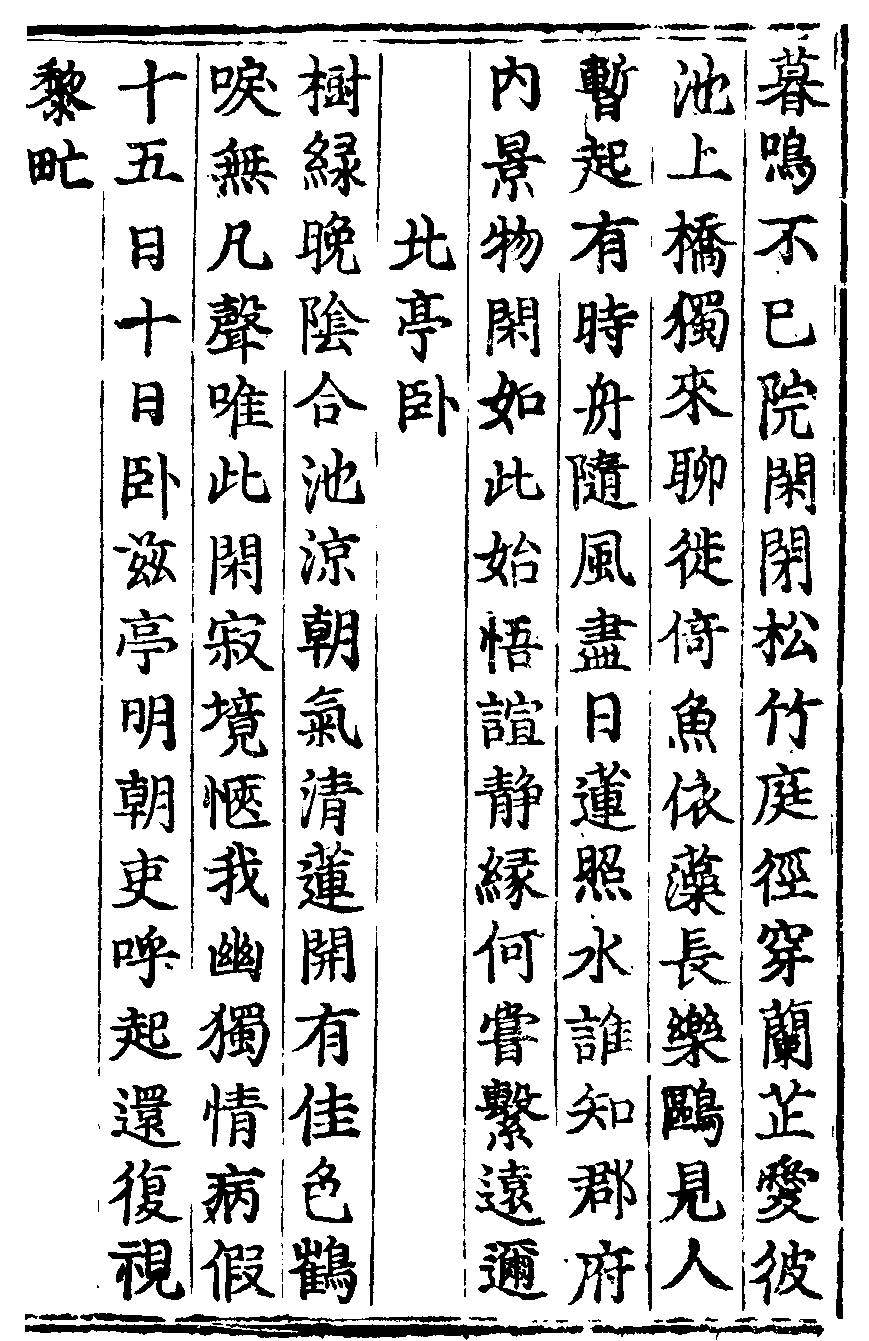 暮鳴不已院閑閉松竹庭徑穿蘭芷愛彼
池上橋獨來聊徙倚魚依藻長樂鷗見人
暫起有時舟隨風盡日蓮照水誰知郡府
内景物閑如此始悟諠静緣何嘗繫遠邇
北亭卧
樹緑晚陰合池涼朝氣清蓮開有佳色鶴
唳無凡聲唯此閑寂境愜我幽獨情病假
十五日十日卧兹亭明朝吏呼起還復視
黎甿